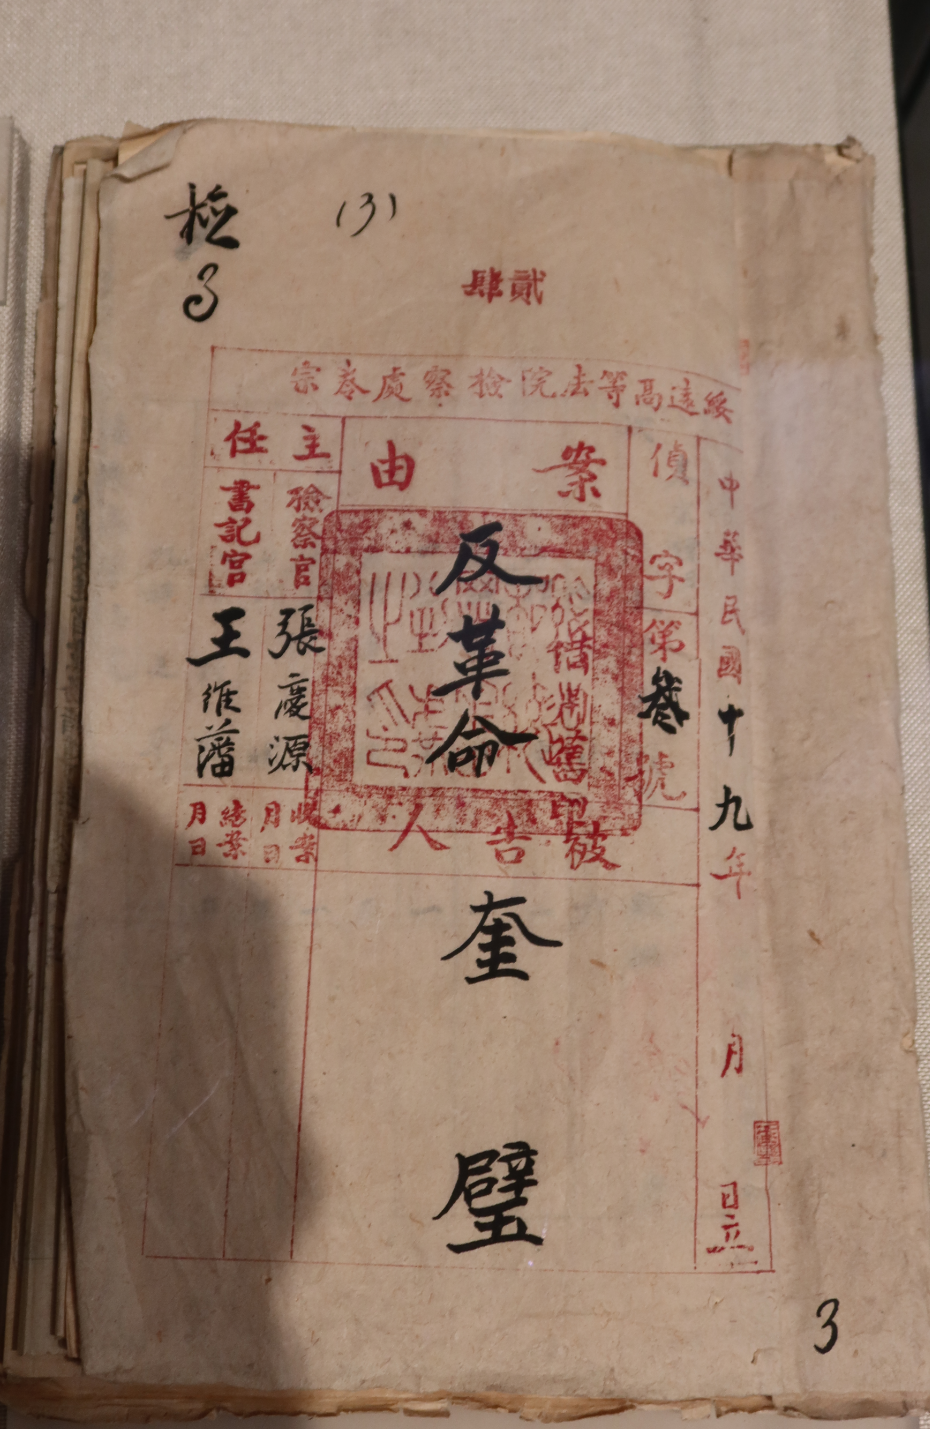 檢
3
(3)
肆貳
宗卷處察檢院法等高遠綏
中華民國十九年 月 日立
偵字第叁號
案由
反革命
被告人
奎璧
主任
檢察官
張慶源
書記官
王維藩
收案
月日
結案
月日
借渕舊印
3